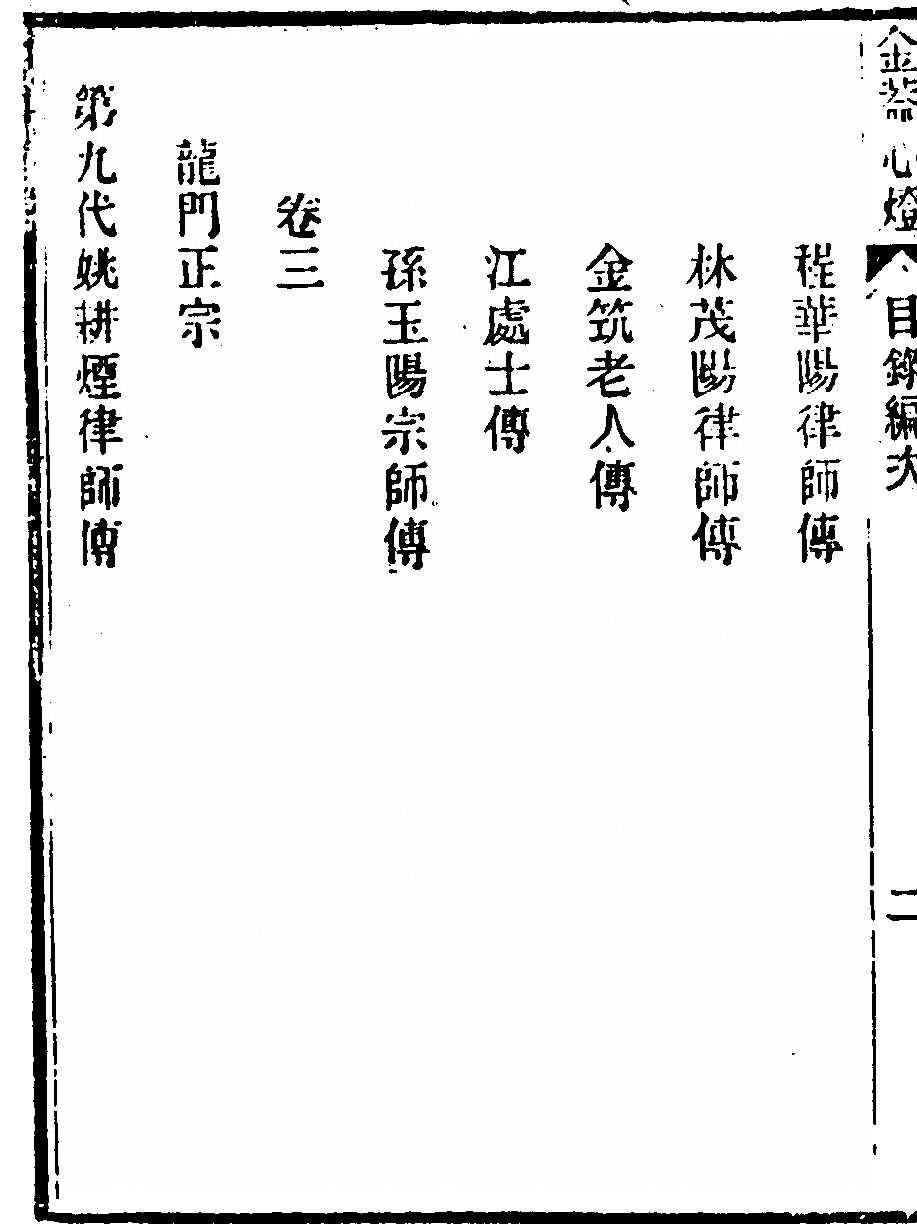 金葢心燈 目錄編次 二
程華陽律師傳
林茂陽律師傳
金筑老人傳
江處士傳
孫玉陽宗師傳
卷三
龍門正宗
第九代姚耕煙律師傳